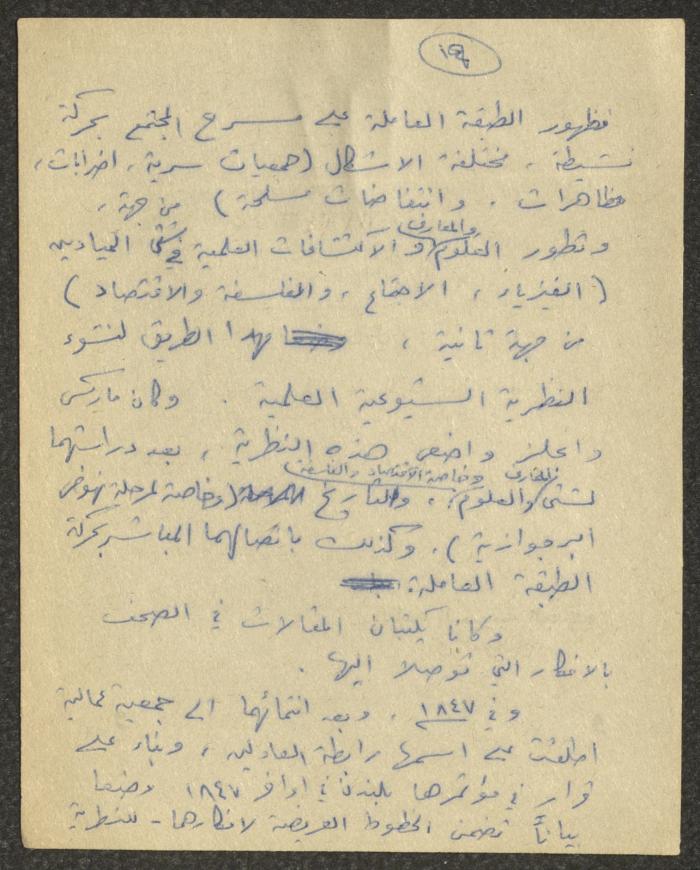 فظهور الطبقة العاملة على مسرح المجتمع بحركة
نشيطة ، مختلفة الاشكال (جمعيات سرية ، اضرابات ،
مظاهرات ، وانتفاضات مسلحة) من جهة ،
وتطور العلوم والمعارف والاكتشافات العلمية في شتى الميادين
(الفيزياء ، الاجتماع ، والفلسفة والاقتصاد)
من جهة ثانية ، مهدا الطريق لنشوء
النظرية الشيوعية العلمية . وكان ماركس
وانجلز واضعي هذه النظرية ، بعد دراستهما
لشتى المعارف والعلوم ، وخاصة الاقتصاد والفلسفة ، والتاريخ (وخاصة لمرحلة نهوض
البرجوازية) . وكذلك باتصالهما المباشر بحركة
الطبقة العاملة .
وكانا يكتبان المقالات في الصحف
بالافكار التي توصلا اليها .
وفي ١٨٤٧ ، وبعد انتمائهما الى جمعية عمالية
اطلقت على اسمها رابطة العادلين ، وبناء على
قرار في مؤتمرها بلندن في اواخر ١٨٤٧ وضعا
بياناً تضمن الخطوط العريضة لافكارهما - للنظرية